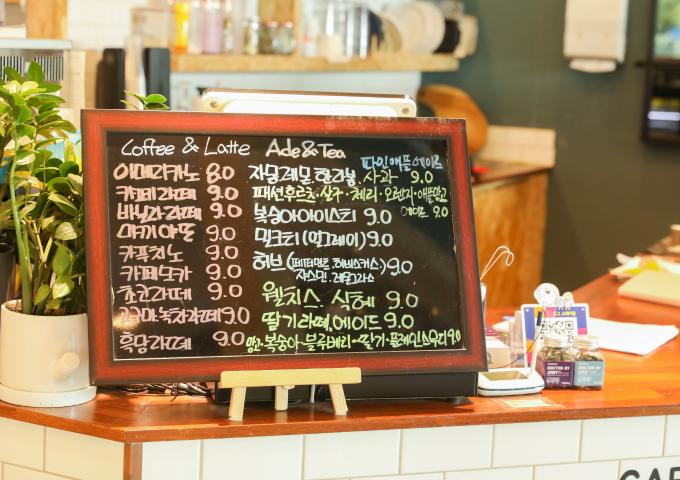 Coffee & Latte
아메리카노 8.0
카페라떼 9.0
바닐라라떼 9.0
마끼아또 9.0
카푸치노 9.0
카페모카 9.0
초코라떼 9.0
고구마.녹차라떼 9.0
흑당라떼 9.0
Ade&Tea
파인애플에이드
자몽.레몬.한라봉.사과 9.0
패션후르츠·살구·체리·오렌지·애플망고
에이드 9.0
복숭아아이스티 9.0
밀크티(얼그레이) 9.0
허브(페퍼민트.히비스커스
자스민.레몬그라스) 9.0
웰치스.식혜 9.0
딸기라떼.에이드 9.0
망고·복숭아·블루베리·딸기·플레인스무디 9.0
DOCTOR BY
CAF